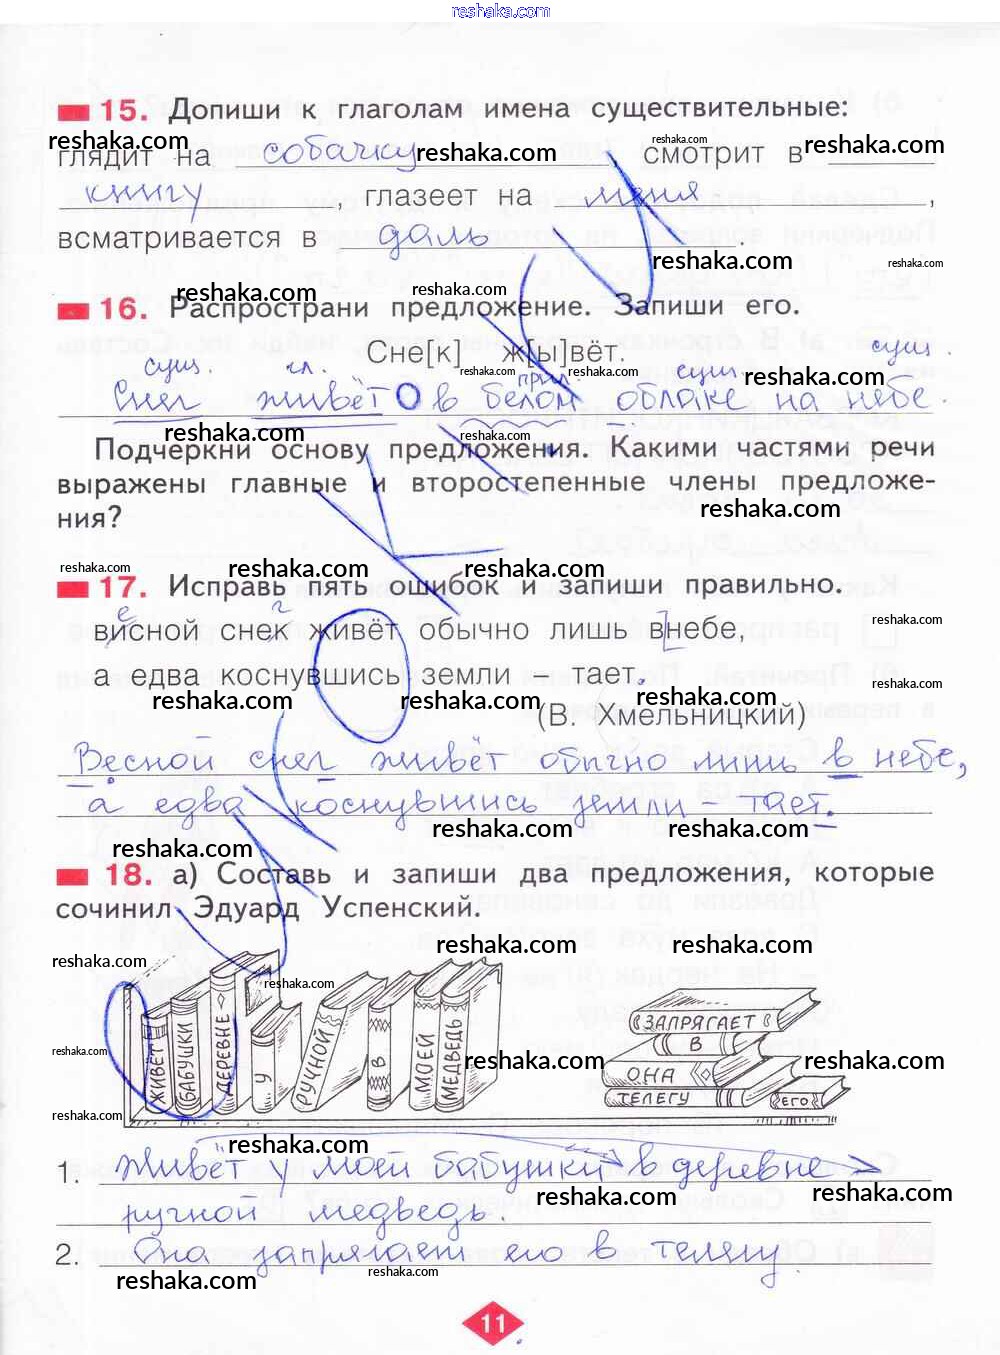 reshaka.com
15. Допиши к глаголам имена существительные:
reshaka.com reshaka.com reshaka.com reshaka.com
глядит на собачку, смотрит в
книгу, глазеет на меня,
всматривается в даль.
reshaka.com reshaka.com
reshaka.com reshaka.com
16. Распространи предложение. Запиши его.
Сне[к] ж[ы]вёт.
сущ. гл. прил. сущ. сущ.
reshaka.com reshaka.com reshaka.com
Снег живёт в белом облаке на небе.
reshaka.com reshaka.com
Подчеркни основу предложения. Какими частями речи
выражены главные и второстепенные члены предложе-
ния?
reshaka.com
reshaka.com reshaka.com reshaka.com
17. Исправь пять ошибок и запиши правильно.
е г
висной снек живёт обычно лишь внебе,
reshaka.com
а едва коснувшись земли – тает.
reshaka.com reshaka.com reshaka.com reshaka.com
(В. Хмельницкий)
Весной снег живёт обычно лишь в небе,
а едва коснувшись земли – тает.
reshaka.com reshaka.com reshaka.com
18. а) Составь и запиши два предложения, которые
сочинил Эдуард Успенский.
reshaka.com reshaka.com reshaka.com
reshaka.com
ЖИВЁТ БАБУШКИ ДЕРЕВНЕ У РУЧНОЙ В МОЕЙ МЕДВЕДЬ
ЗАПРЯГАЕТ
В
ОНА
ТЕЛЕГУ ЕГО
reshaka.com reshaka.com reshaka.com
reshaka.com
reshaka.com
1. Живёт у моей бабушки в деревне
reshaka.com reshaka.com
ручной медведь.
2. Она запрягает его в телегу.
reshaka.com reshaka.com
11